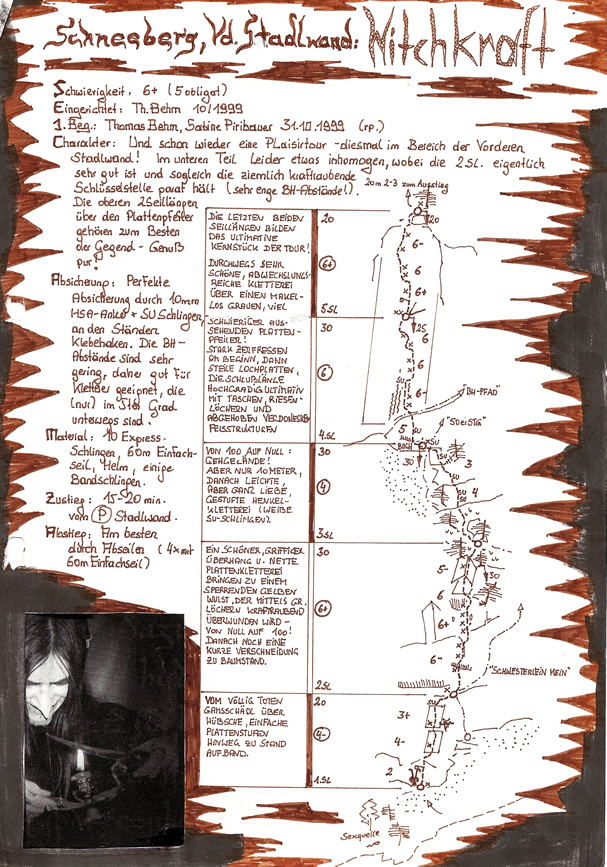 Schneeberg, Vd. Stadlwand: Witchkraft
Schwierigkeit: 6+ (5 obligat)
Eingerichtet: Th. Behm 10/1999
1. Beg.: Thomas Behm, Sabine Piribauer 31.10.1999 (rp.)
Charakter: Und schon wieder eine Plaisirtour - diesmal im Bereich der Vorderen
Stadlwand! Im unteren Teil leider etwas inhomogen, wobei die 2 SL. eigentlich
sehr gut ist und sogleich die ziemlich kraftraubende
Schlüsselstelle parat hält (sehr enge BH-Abstände!).
Die oberen 2 Seillängen
über den Plattenpfeiler
gehören zum Besten
der Gegend - Genuß
pur!
Absicherung: Perfekte
Absicherung durch 10mm
HSA-Anker + SU Schlingen,
an den Ständen
Klebehaken. Die BH-
Abstände sind sehr
gering, daher gut für
Kletterer geeignet, die
(nur) im 5ten Grad
unterwegs sind.
Material: 10 Express-
Schlingen, 60m Einfach-
seil, Helm, einige
Bandschlingen.
Zustieg: 15-20 min.
vom P Stadlwand.
Abstieg: Am besten
durch Abseilen (4x mit
60m Einfachseil)
DIE LETZTEN BEIDEN
SEILLÄNGEN BILDEN
DAS ULTIMATIVE
KERNSTÜCK DER TOUR!
DURCHWEGS SEHR
SCHÖNE, ABWECHSLUNGS-
REICHE KLETTEREI
ÜBER EINEN MAKEL-
LOS GRAUEN, VIEL
20
6+
5.SL
SCHWIERIGER AUS-
SEHENDEN PLATTEN-
PFEILER!
STARK ZERFRESSEN
AM BEGINN, DANN
STEILE LOCHPLATTEN,
DIE SCHLUßLÄNGE
HOCHGRADIG ULTIMATIV
MIT TASCHEN, RIESEN-
LÖCHERN UND
ABGEHOBEN VERDONESKEN
FELSSTRUKTUREN
30
6
4.SL
VON 100 AUF NULL:
GEHGELÄNDE!
ABER NUR 10 METER,
DANACH LEICHTE,
ABER GANZ LIEBE,
GESTUFTE HENKEL-
KLETTEREI (WEIßE
SU-SCHLINGEN).
30
4
3.SL
EIN SCHÖNER, GRIFFIGER
ÜBERHANG U. NETTE
PLATTENKLETTEREI
BRINGEN ZU EINEM
SPERRENDEN GELBEN
WULST, DER MITTELS GR.
LÖCHERN KRAFTRAUBEND
ÜBERWUNDEN WIRD -
VON NULL AUF 100!
DANACH NOCH EINE
KURZE VERSCHNEIDUNG
ZU BAUMSTAND.
30
6+
2.SL
VOM VÖLLIG TOTEN
GAMSSCHÄDL ÜBER
HÜBSCHE, EINFACHE
PLATTENSTUFEN
HINWEG ZU STAND
AUF BAND.
20
4-
1.SL
20m 2-3 zum Ausstieg
20
6-
6
6+
6
25
6
6
6-
SU
"BH-PFAD"
5
"SUEISTG"
BUCH
SU
30
3
SU
4
SU
5-
30
6
6+
6-
"SCHWESTERLEIN MEIN"
SU
3+
4-
2
Sexquelle